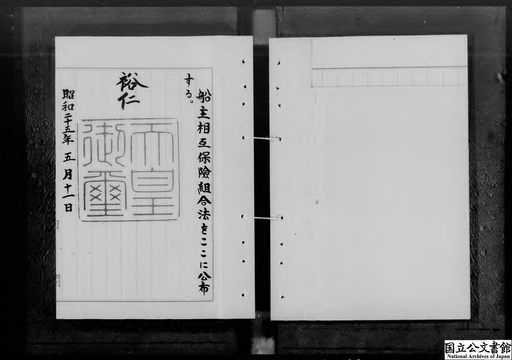 船主相互保險組合法をここに公布
する。
裕仁
天皇
御璽
昭和二十五年五月十一日
国立公文書館
National Archives of Japan